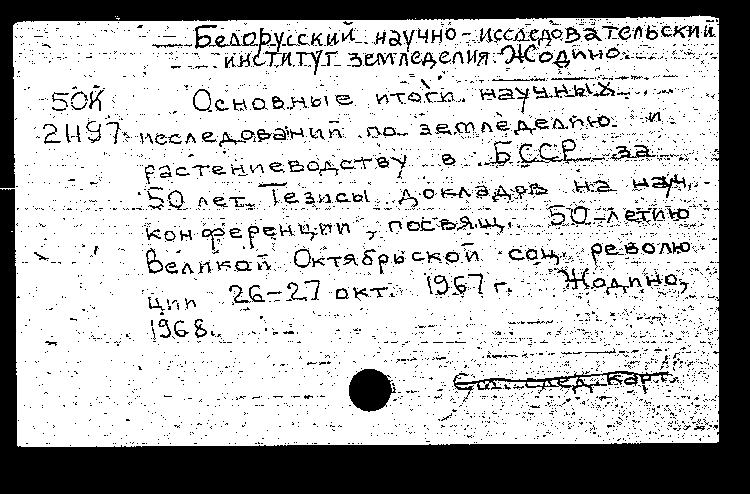 Белорусский научно-исследовательский
институт земледелия. Жодино.
50К Основные итоги научных
2Н97 исследований по земледелию и
растениеводству в БССР за
50 лет. Тезисы докладов на науч.
конференции, посвящ. 50-летию
Великой Октябрьской соц. револю
ции 26-27 окт. 1967 г. Жодино,
1968.
См. след. карт.